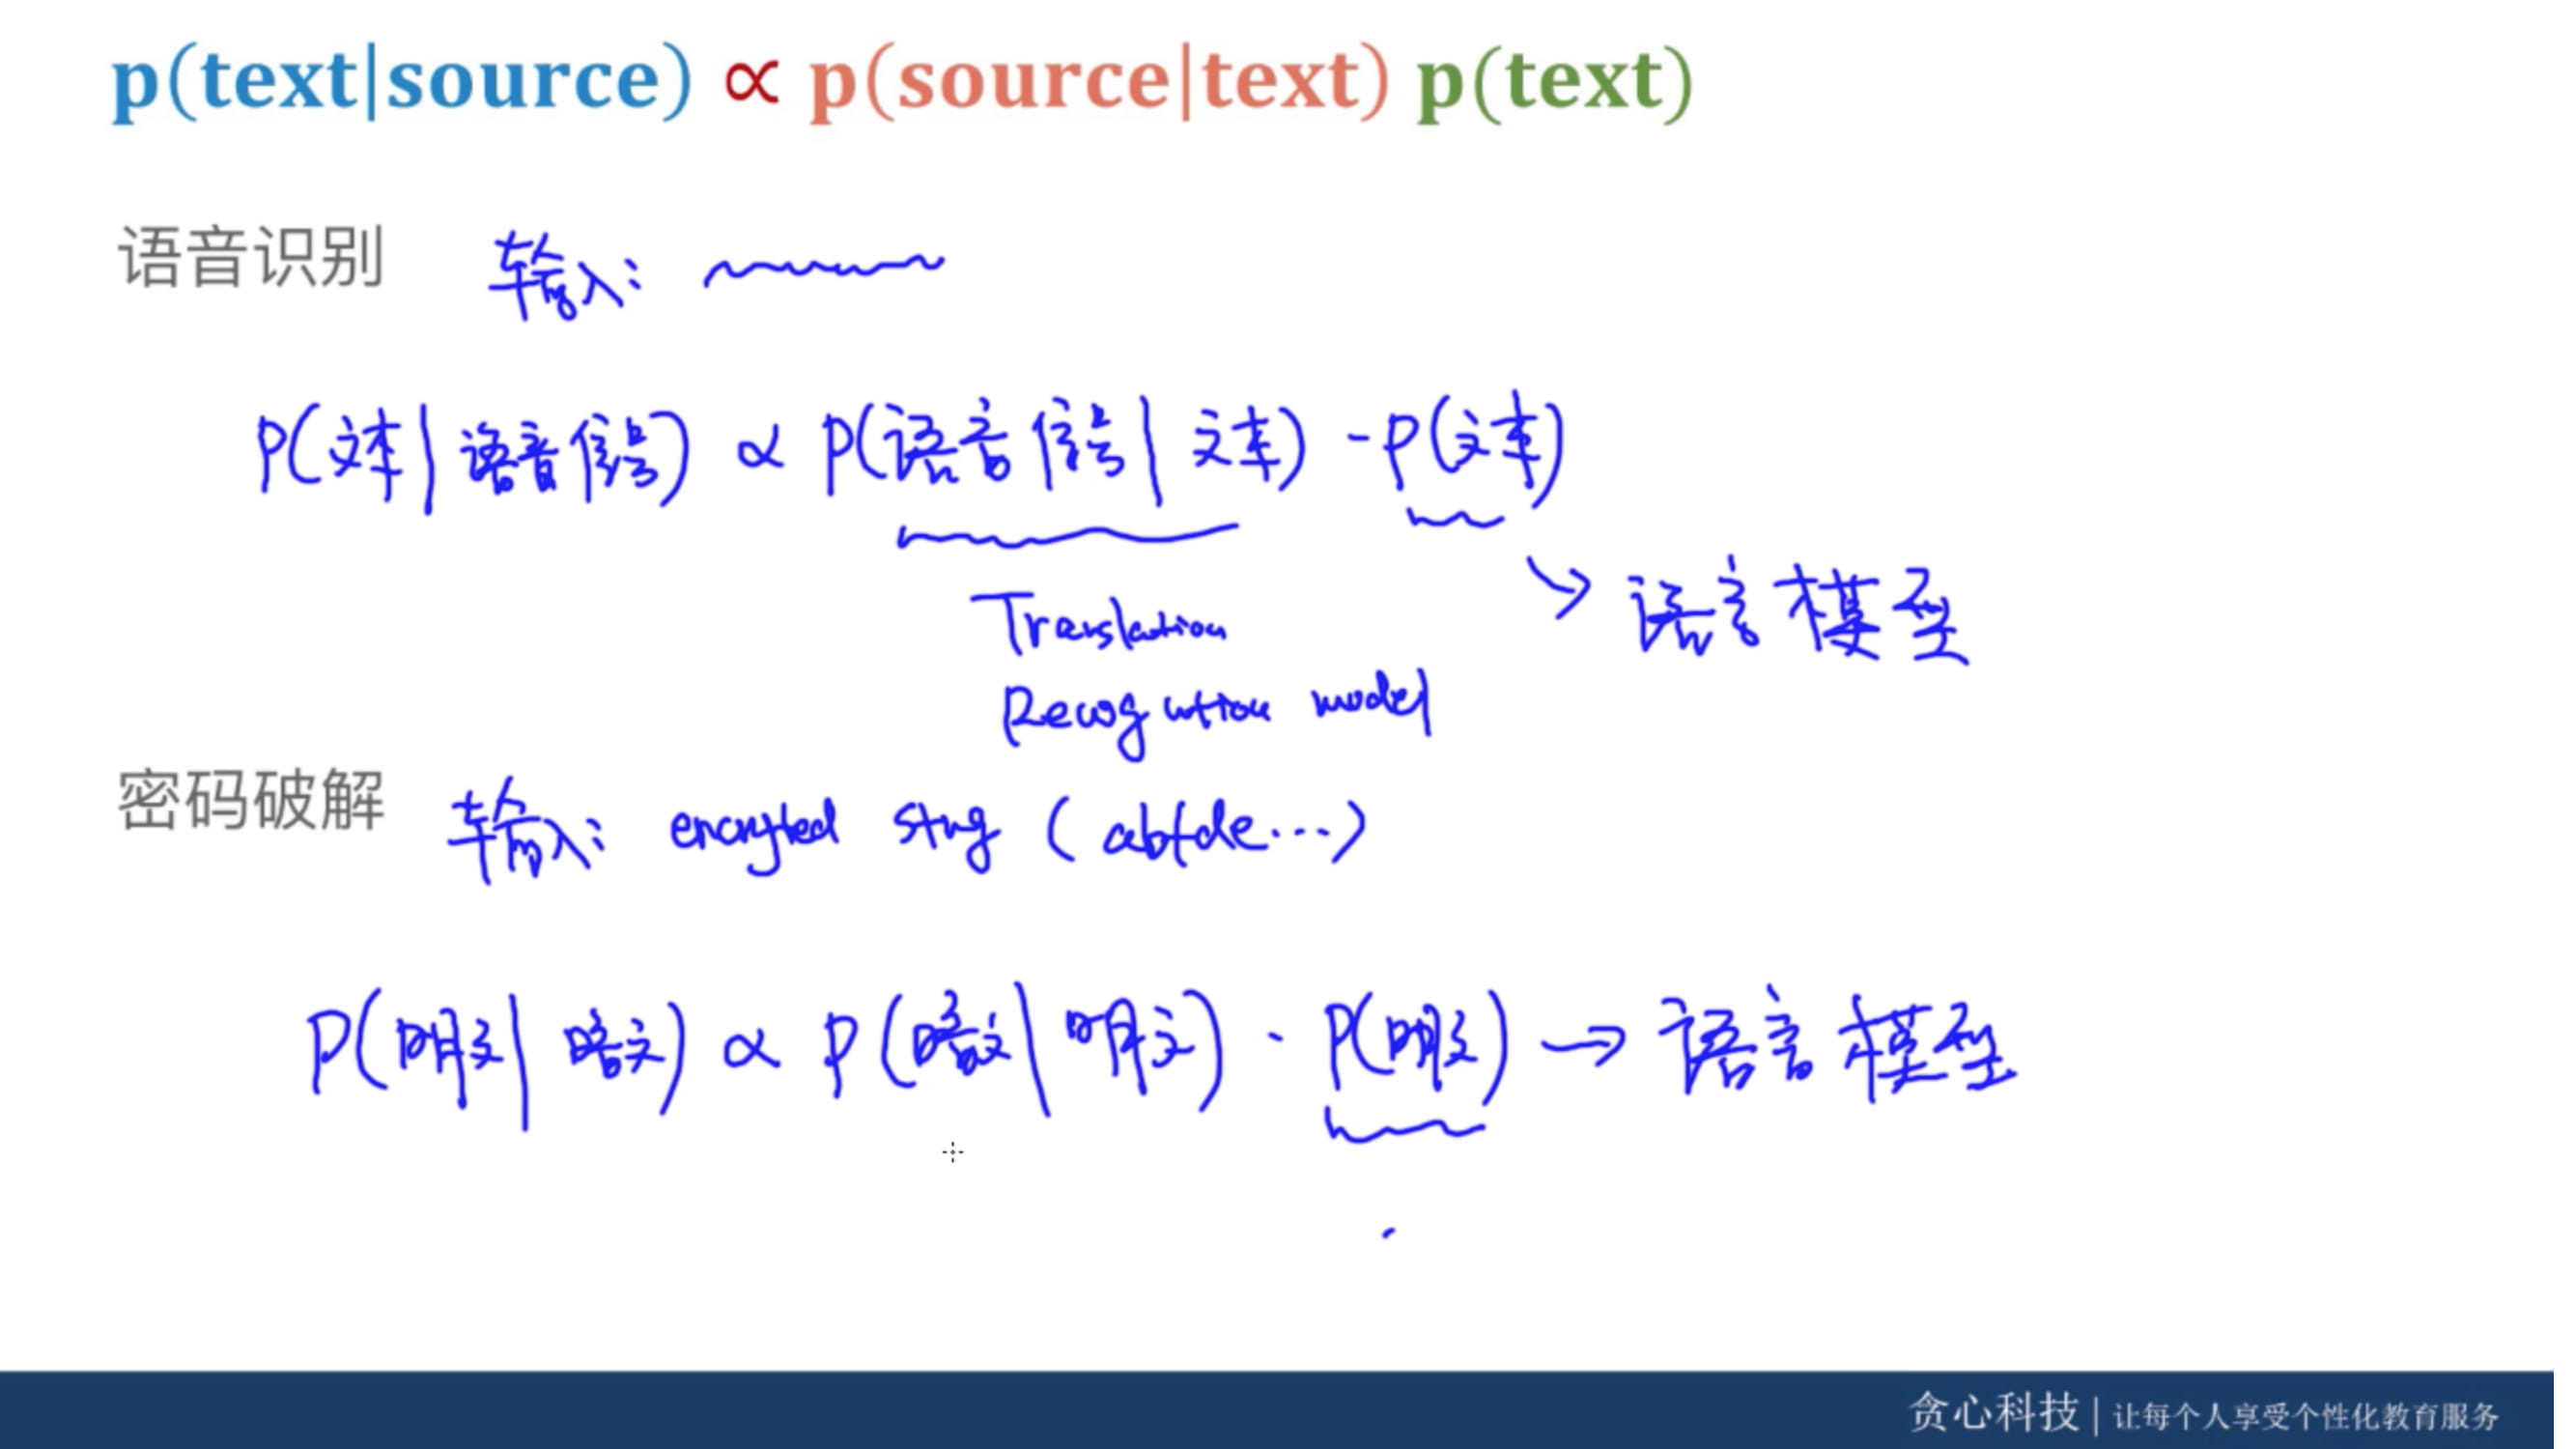 p(text|source) ∝ p(source|text) p(text)
语音识别 输入:
P(文本|语音信号) ∝ P(语音信号|文本) · P(文本)
→ 语言模型
Translation
Recognition model
密码破解 输入: encrypted string (abfde...)
P(明文|暗文) ∝ P(暗文|明文) · P(明文) → 语言模型
贪心科技 | 让每个人享受个性化教育服务